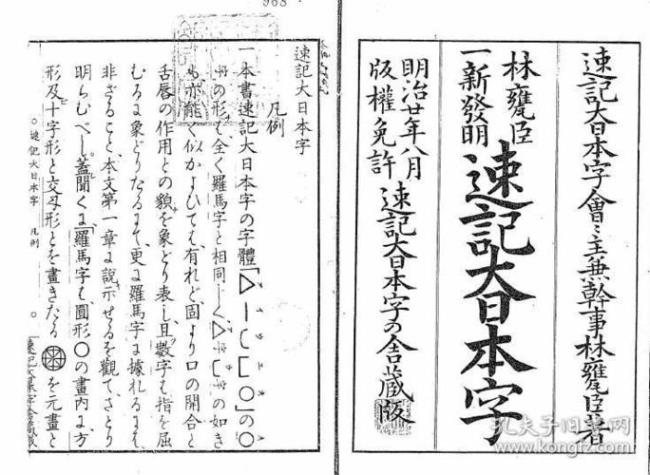 速記大日本字會々主兼幹事林甕臣著
林甕臣
一新發明
速記大日本字
明治廿年八月
版權免許
速記大日本字の舍藏版
速記大日本字
凡例
一本書速記大日本字の字體
の形も全く羅馬字と相同しく
能く似かよひても有れど固より口の開合と
舌唇の作用との貌を象どり表し且數字も指を屈
むるに象どりたるにて更に羅馬字に據れるに
非ざること本文第一章に說示せるを觀てさとり
明らむべし蓋聞くに羅馬字も圓形〇の畫内に方
形及十字形と交叉形とを畫きたる を元畫と
〇速記大日本字 凡例 〇
孔夫子旧书网
www.kongfz.com